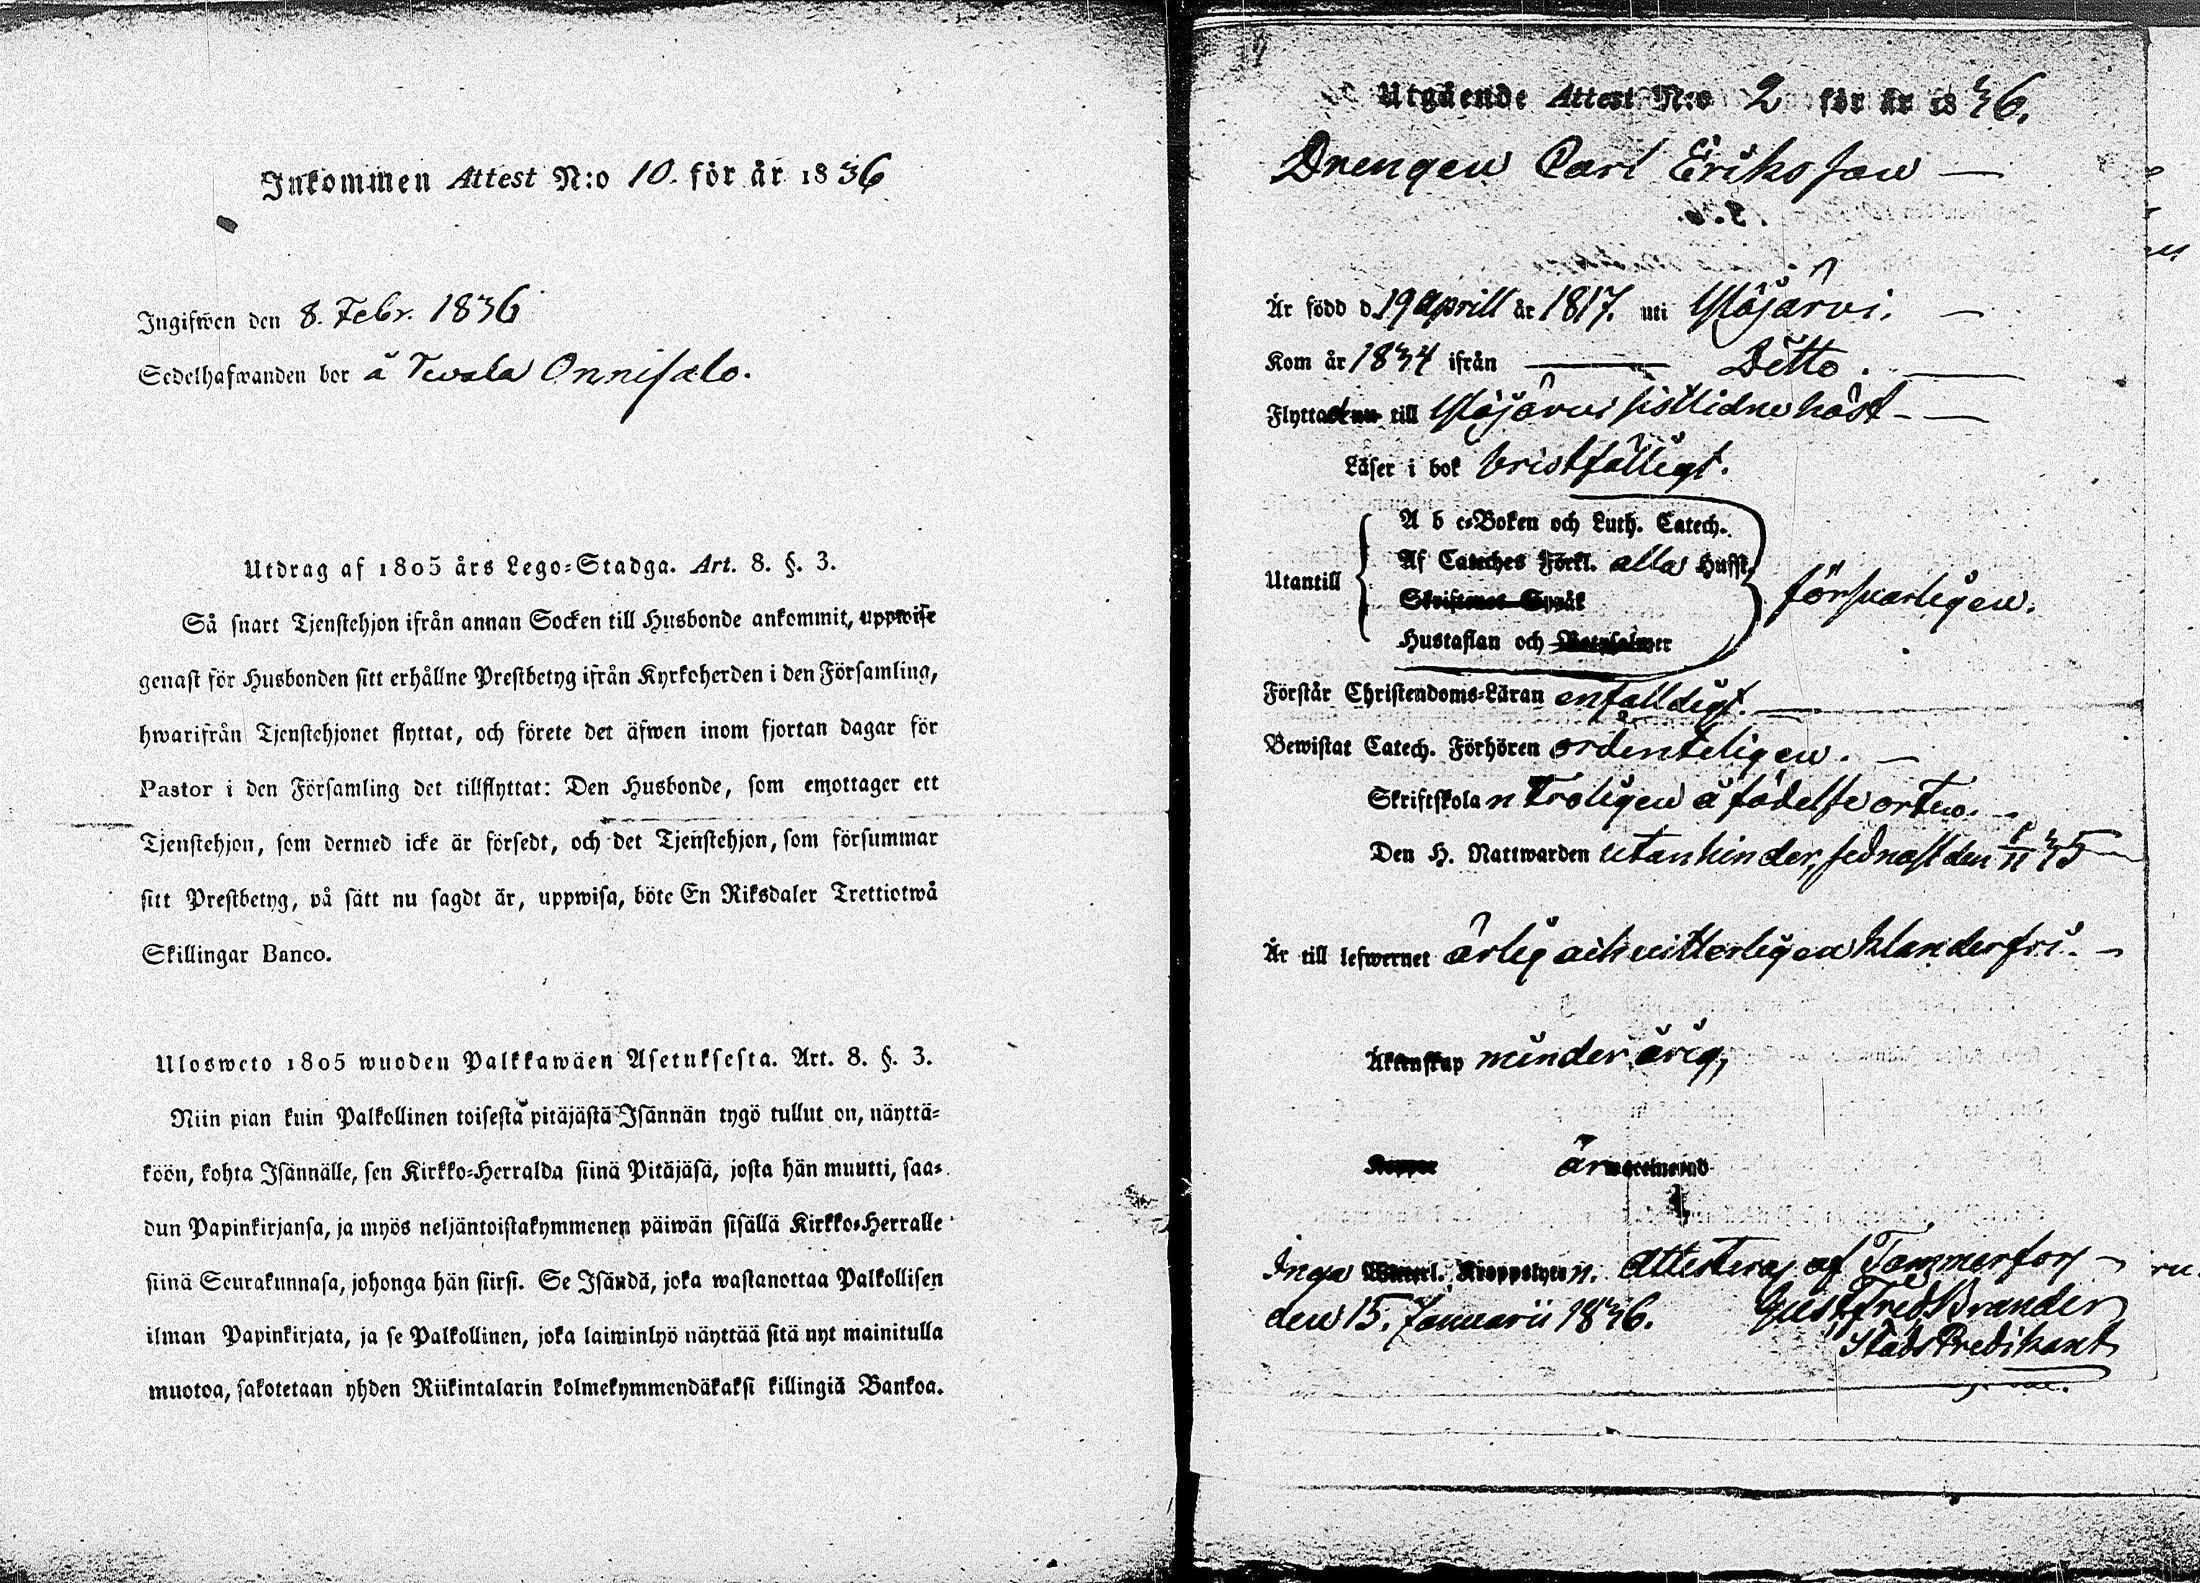 Inkommen Attest N:o 10. för år 1836
Ingifwen den 8. Febr. 1836
Sedelhafwanden bor å Onnisalo.
Utdrag af 1805 års Lego-Stadga. Art. 8. §. 3.
Så snart Tjenstehjon ifrån annan Socken till Husbonde ankommit, uppwise
genast för Husbonden sitt erhållne Prestbetyg ifrån Kyrkoherden i den Församling,
hwarifrån Tjenstehjonet flyttat, och förete det äfwen inom fjortan dagar för
Pastor i den Församling det tillflyttat: Den Husbonde, som emottager ett
Tjenstehjon, som dermed icke är försedt, och det Tjenstehjon, som försummar
sitt Prestbetyg, på sätt nu sagdt är, uppwisa, böte En Riksdaler Trettiotwå
Skillingar Banco.
Ulosweto 1805 wuoden Palkkawäen Asetuksesta. Art. 8. §. 3.
Niin pian kuin Palkollinen toisesta pitäjästä Isännän tygö tullut on, näyttä-
köön, kohta Isännälle, sen Kirkko-Herralda siinä Pitäjäsä, josta hän muutti, saa-
dun Papinkirjansa, ja myös neljäntoistakymmenen päiwän sisällä Kirkko-Herralle
siinä Seurakunnasa, johonga hän siirsi. Se Isändä, joka wastanottaa Palkollisen
ilman Papinkirjata, ja se Palkollinen, joka laiminlyö näyttää sitä nyt mainitulla
muotoa, sakotetaan yhden Riikintalarin kolmekymmendäkaksi killingiä Bankoa.
Utgående Attest N:o 2 för år 1836.
Drengen Carl Eriksson
Är född d. 19 Aprill år 1817. uti Ylöjärvi.
Kom år 1834 ifrån Ditto.
Flyttade till Ylöjärvi sistlidne höst
Läser i bok bristfälligt.
A b c-Boken och Luth. Catech.
Utantill Af Cateches Förkl. alla Hufst. försvarligen.
Skriftenes Språk
Hustaflan och Botpsalmer
Förstår Christendoms-Läran enfalldigt.
Bewistat Catech. Förhören ordenteligen.
Skriftskolan troligen å födelse orten.
Den H. Nattwarden utan hinder, sednast den 1/11 35
Är till lefwernet ärlig och vitterligen klanderfri.
Äktenskap minderårig,
Koppor är vaccinerad
Inga Kroppslyten. Attesteras af Tammerfors
den 15. Januarii 1836. Gust. Fred. Brander
Stads Predikant